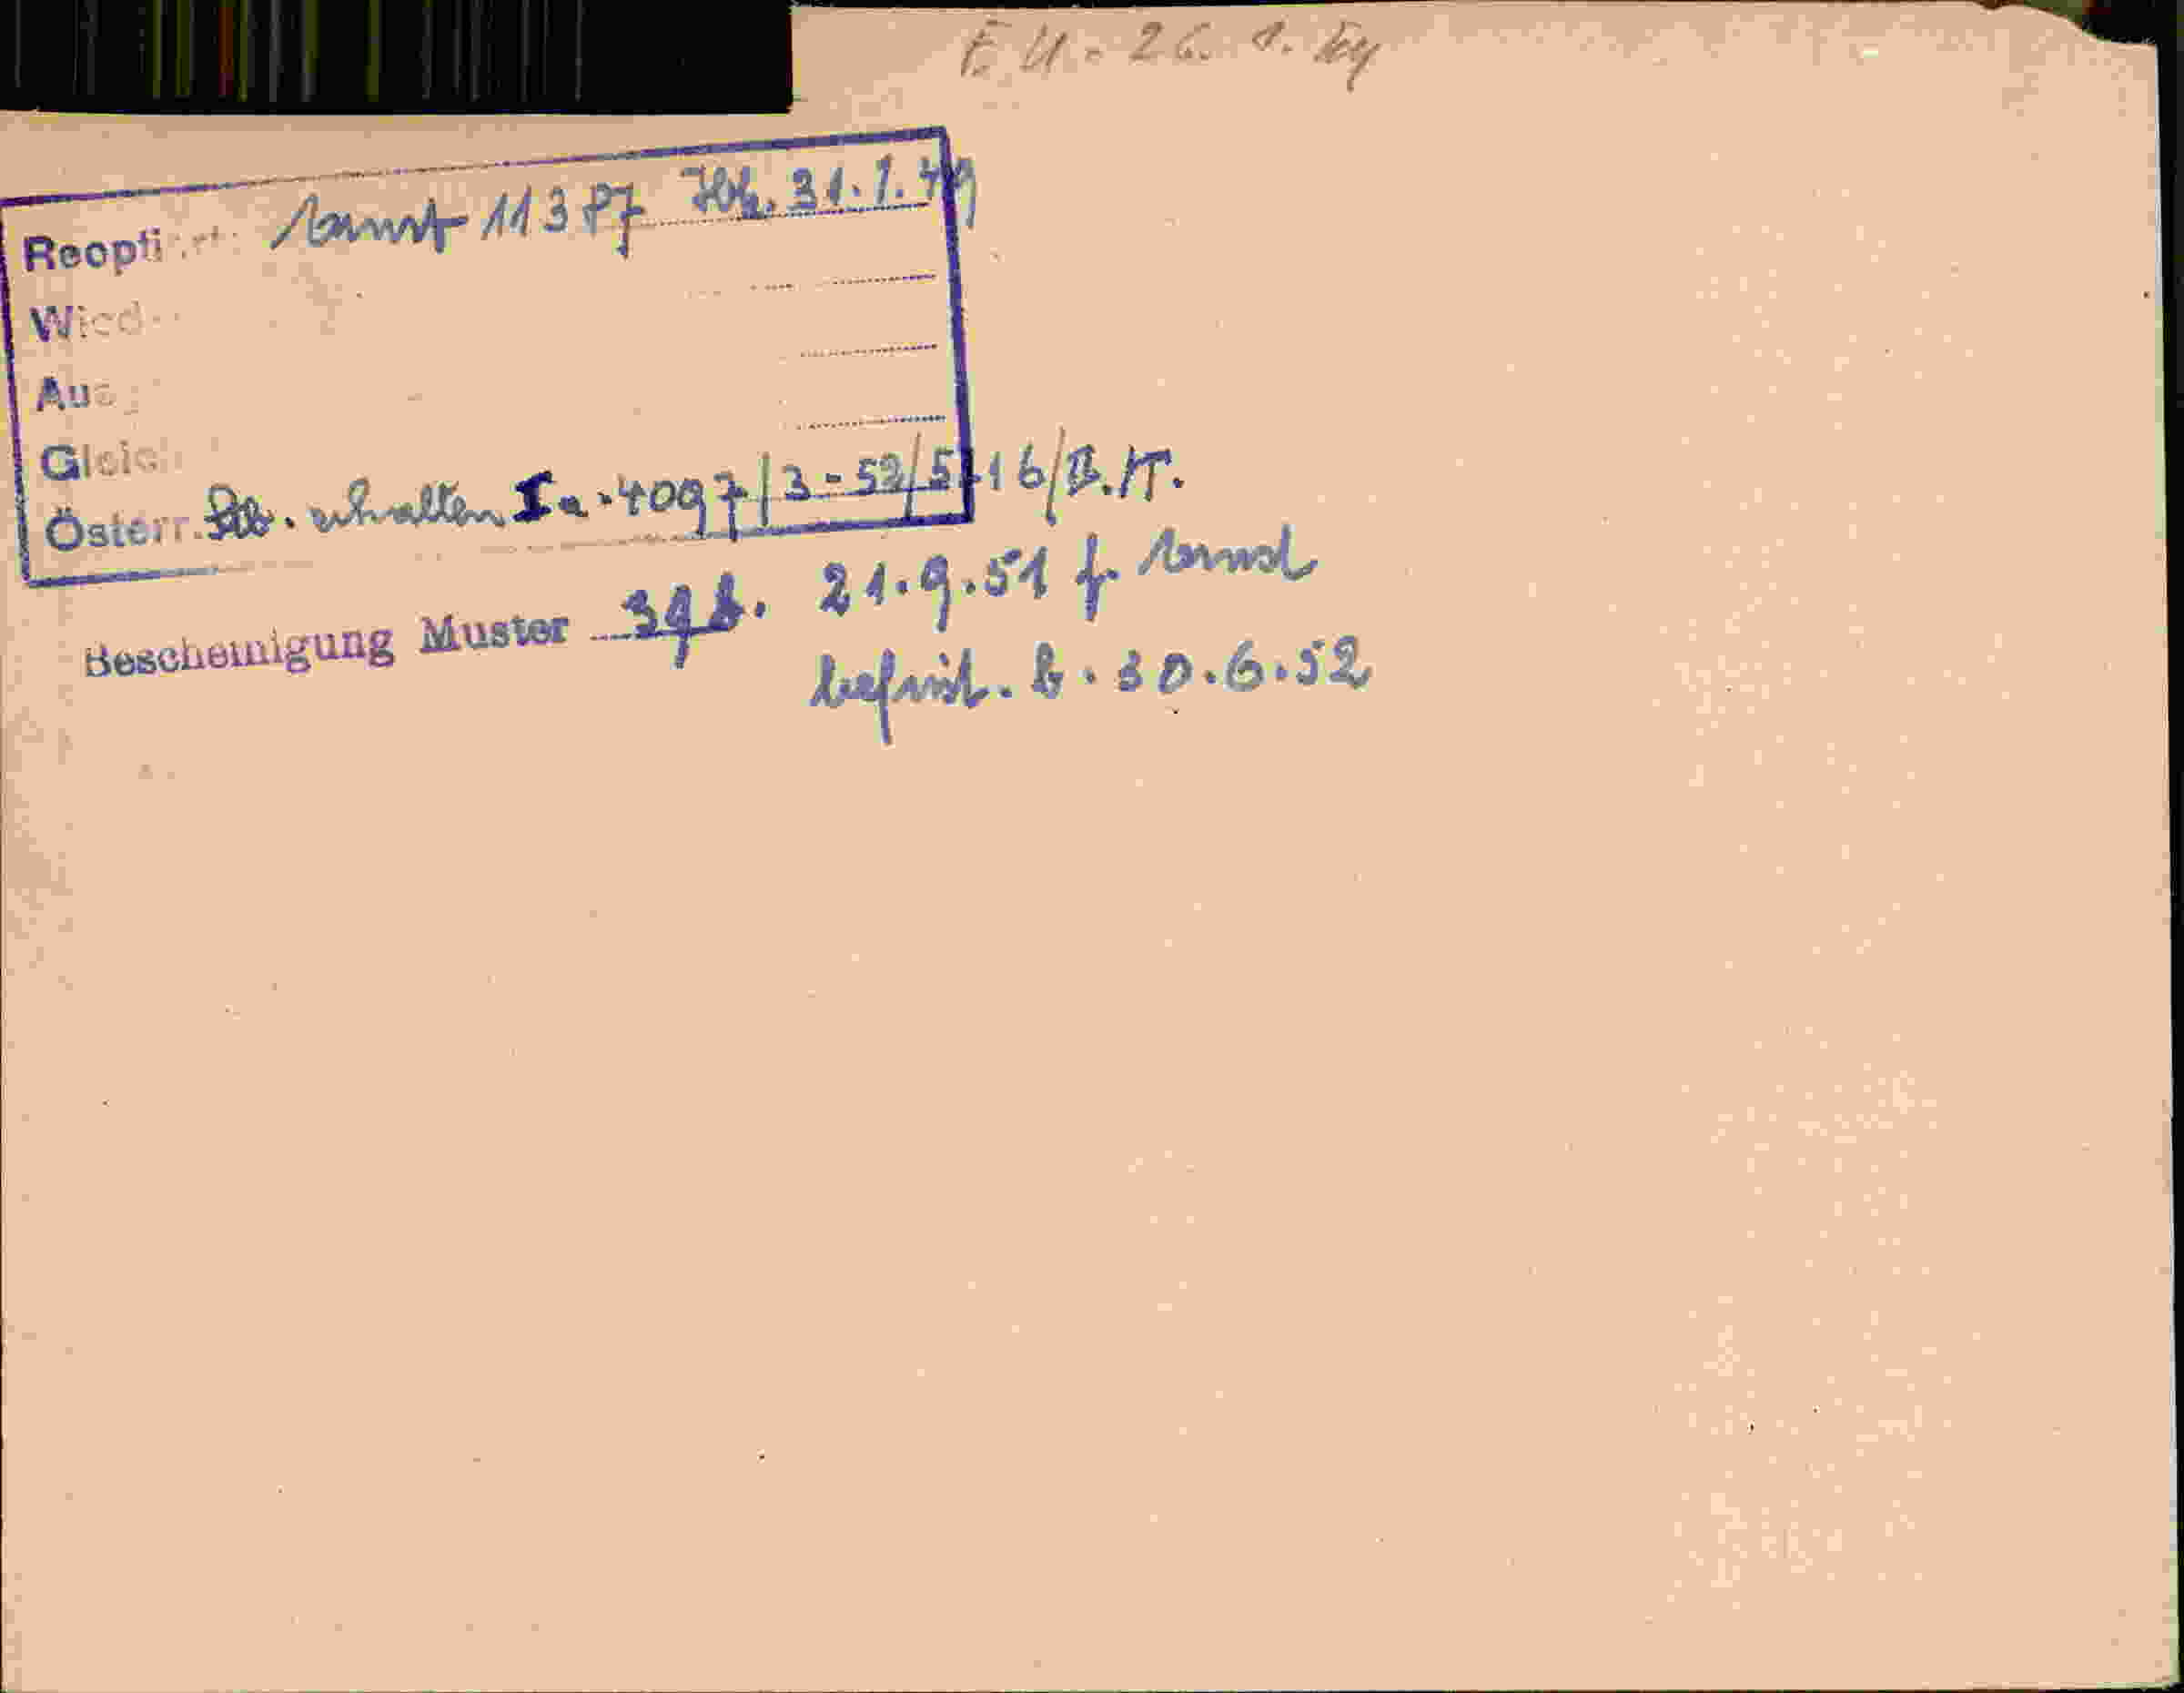 E. U. 26. 1.
Reoptiert: 113 31.1.49
Wied
Aus
Gleich
Österr. Stb. erhalten Ia-4097/3-52/5.16/B.N.
Bescheinigung Muster 39b. 21.9.51 f.
befrist. b. 30.6.52